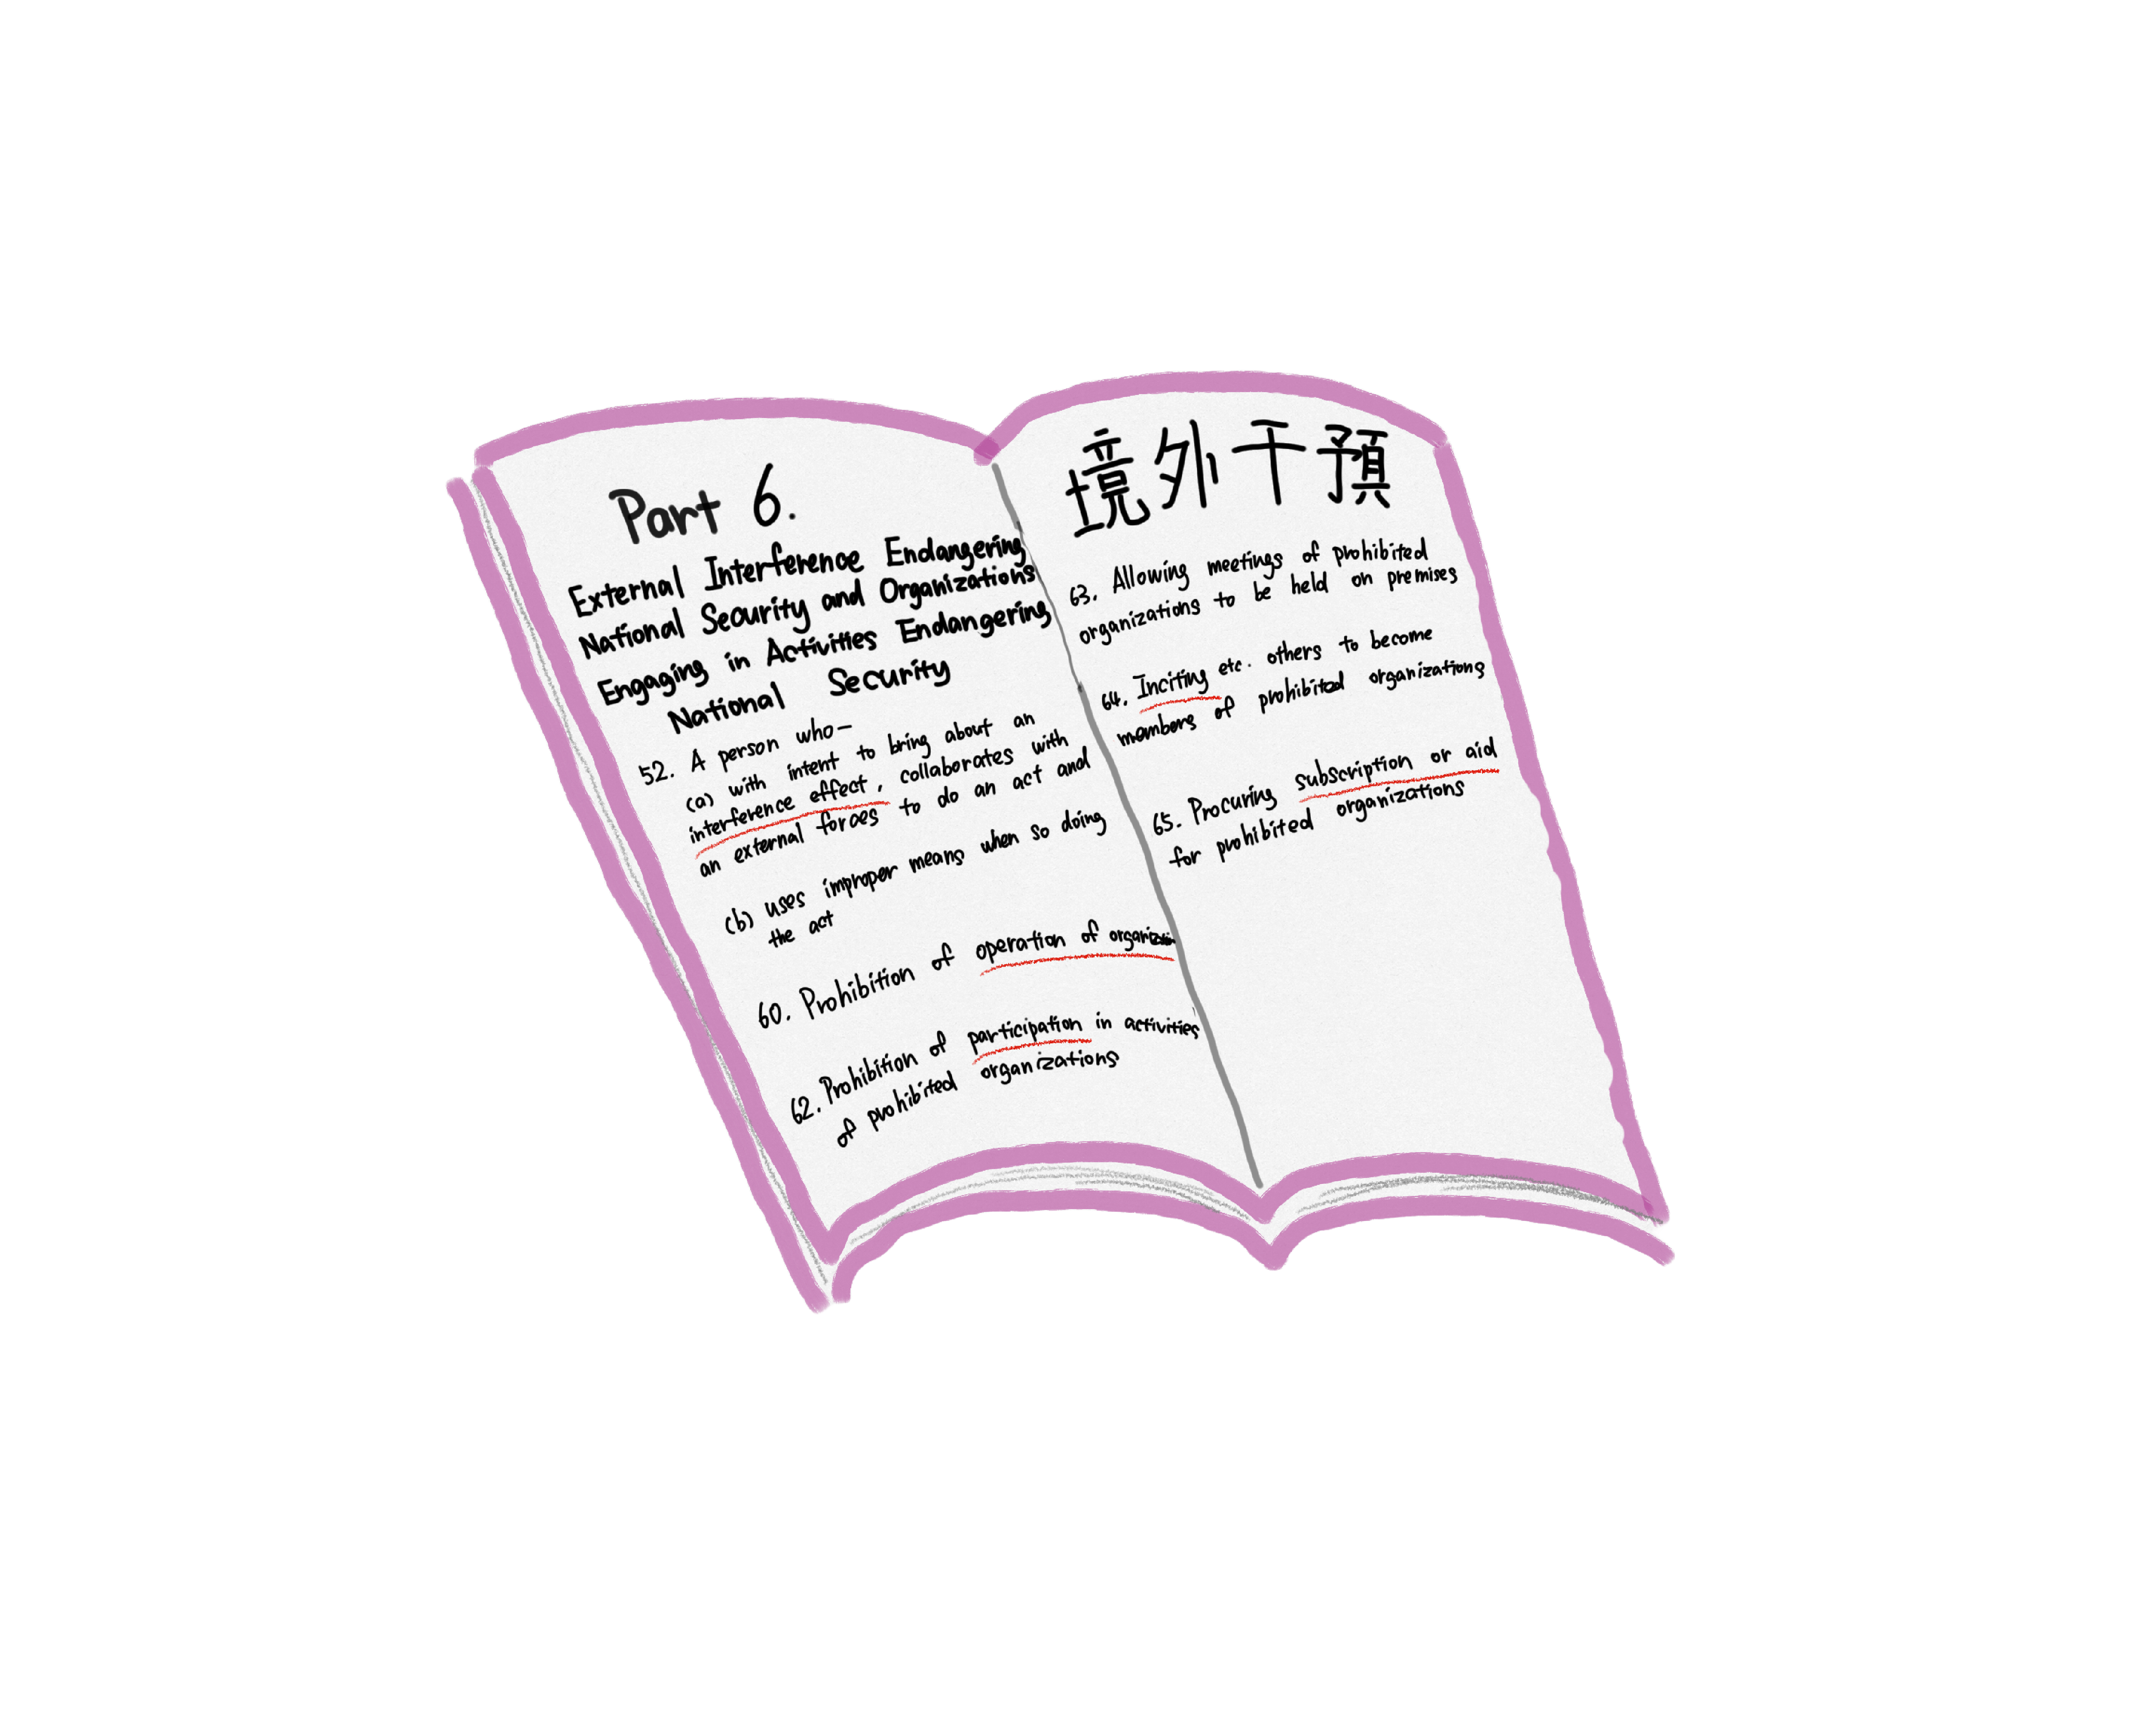 Part 6.
External Interference Endangering
National Security and Organizations
Engaging in Activities Endangering
National Security
52. A person who—
(a) with intent to bring about an
interference effect, collaborates with
an external forces to do an act and
(b) uses improper means when so doing
the act
60. Prohibition of operation of organization
62. Prohibition of participation in activities
of prohibited organizations
境外干預
63. Allowing meetings of prohibited
organizations to be held on premises
64. Inciting etc. others to become
members of prohibited organizations
65. Procuring subscription or aid
for prohibited organizations